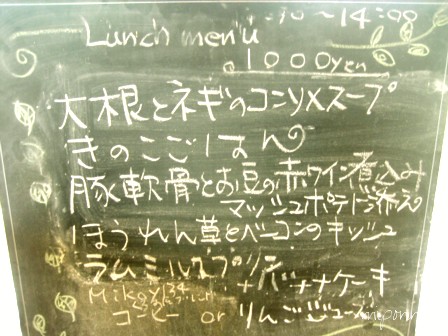 Lunch menu
:30〜14:00
1000yen
大根とネギのコンソメスープ
きのこごはん
豚軟骨とお豆の赤ワイン煮込み
マッシュポテト添え
ほうれん草とベーコンのキッシュ
+バナナケーキ
コーヒー or りんごジュース